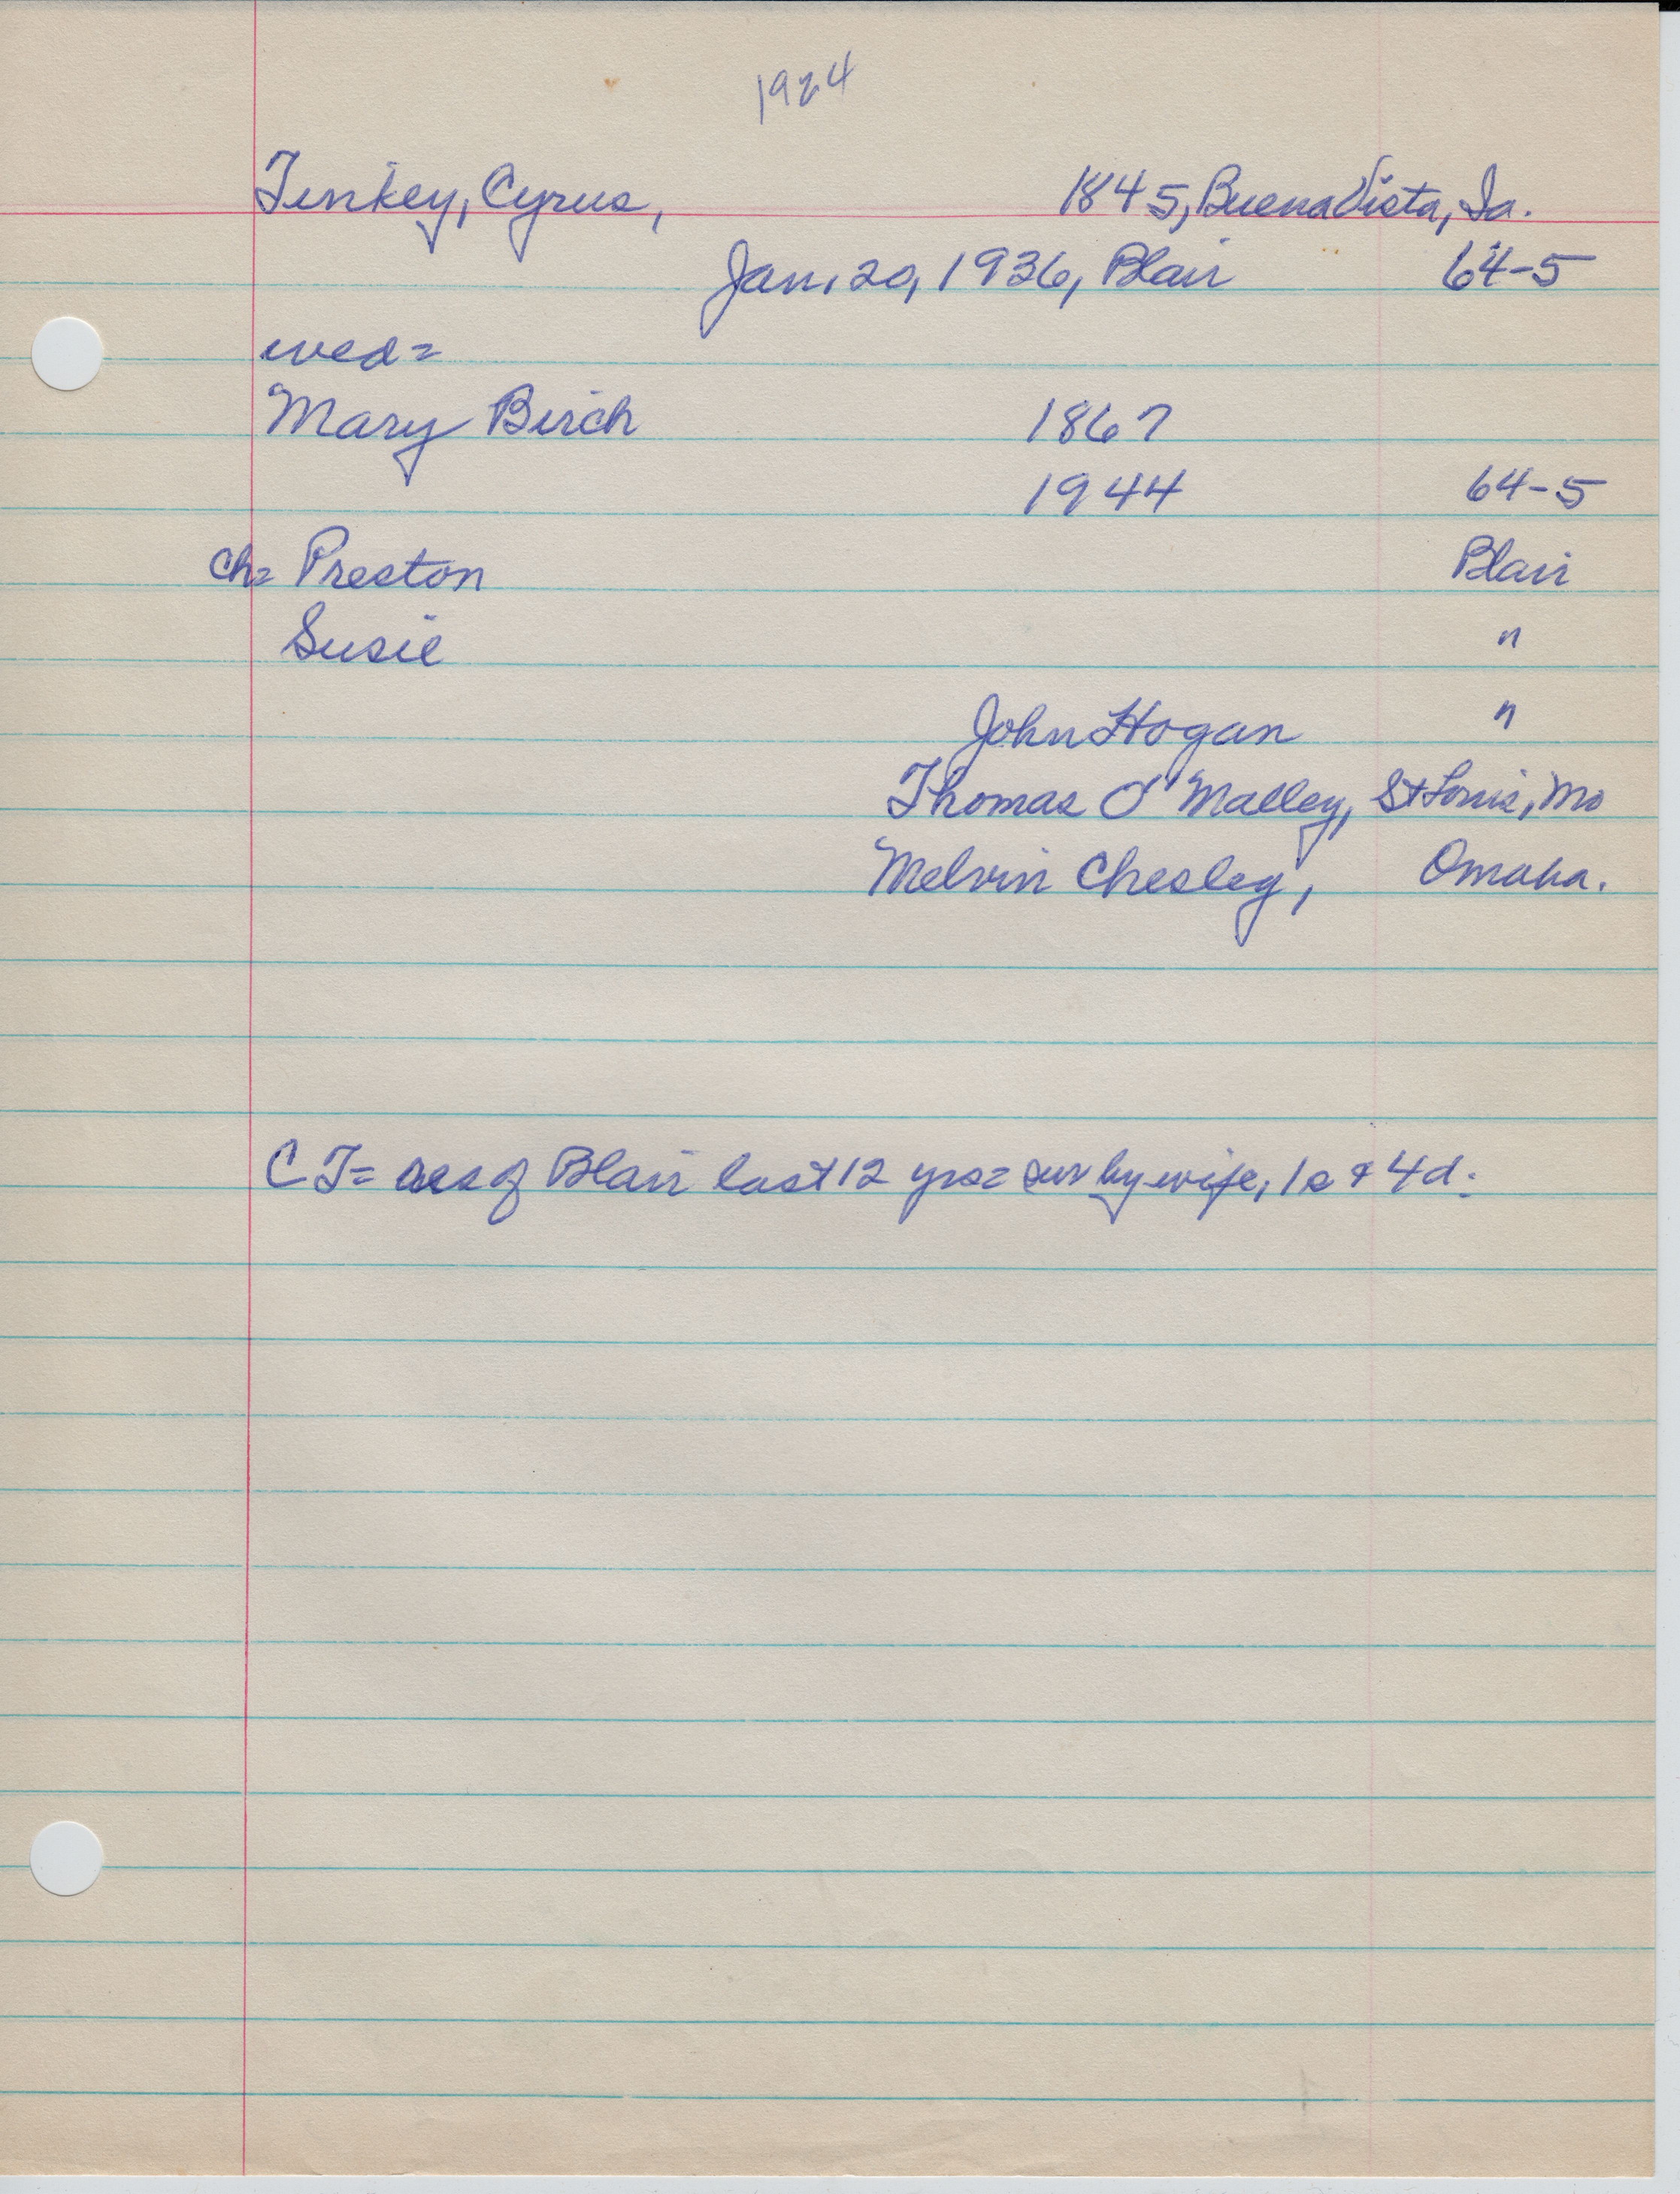 1924
Tinkey, Cyrus, 1845, Buena Vista, Ia.
Jan. 20, 1936, Blair 64-5
wed=
Mary Birch 1867
1944 64-5
ch= Preston Blair
Susie "
John Hogan "
Thomas O'Malley, St Louis, Mo
Melvin Chesley, Omaha.
C T= res of Blair last 12 yrs= sur by wife, 1 s & 4 d.